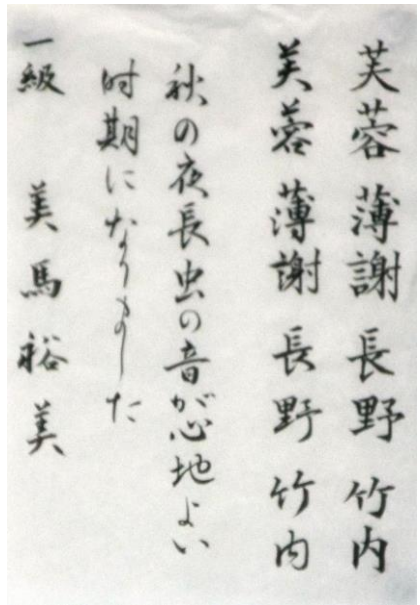 芙蓉 薄謝 長野 竹内
芙蓉 薄謝 長野 竹内
秋の夜長虫の音が心地よい
時期になりました
一級 美馬裕美